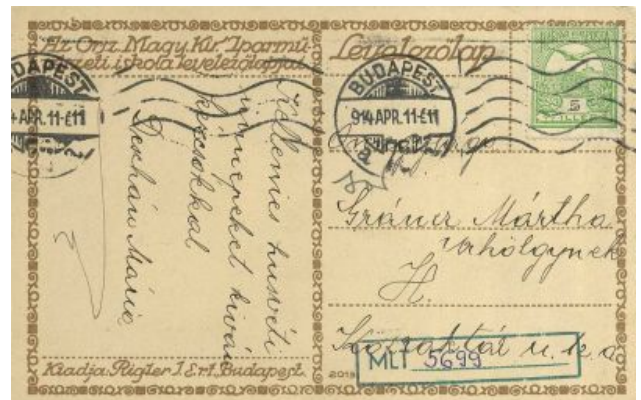 Az Orsz. Magy. Kir. Iparmű-
vészeti iskola levelezőlapja
Levelezőlap
BUDAPEST
914 APR. 11-E11
BUDAPEST
APR. 11-E11
Kellemes husvéti
ünnepeket kíván
kézcsókkal
Mária
Gráner Mártha
urhölgynek
H.
Közraktár u.
MLT 5699
Kiadja Rigler J. E. r.t. Budapest.